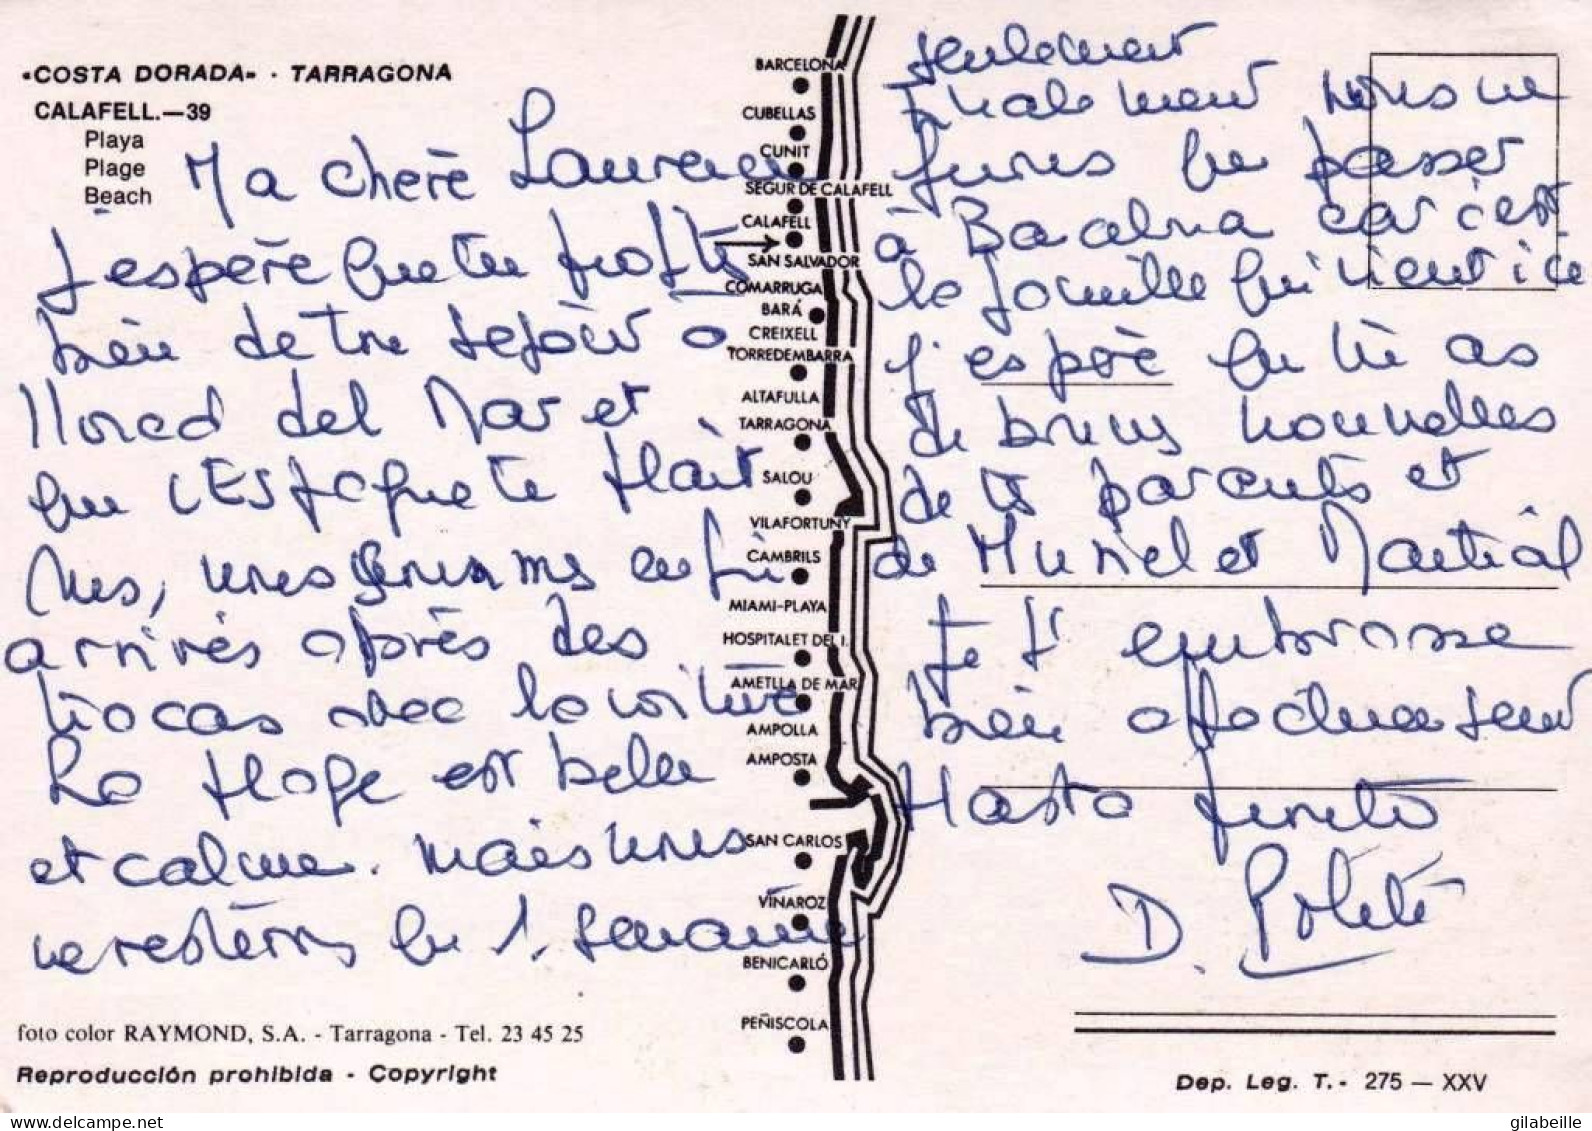 «COSTA DORADA» · TARRAGONA
CALAFELL.—39
Playa
Plage
Beach
Ma chère Laurence
j'espère que tu profites
bien de ton sejour a
llored del Mar et
que l'Espagne te plait
nous sommes enfin
arrivés après des
tracas avec la voiture
La plage est belle
et calme. mais nous
ne resterons qu 1. semaine
seulement
finalement nous ne
que passer
à car c'est
la famille qui vient ici
j'espère que tu as
de bonnes nouvelles
de tes parents et
de Muriel et Martial
Je t'embrasse
bien affectueusement
Hasta
D.
BARCELONA
CUBELLAS
CUNIT
SEGUR DE CALAFELL
CALAFELL
SAN SALVADOR
COMARRUGA
BARÁ
CREIXELL
TORREDEMBARRA
ALTAFULLA
TARRAGONA
SALOU
VILAFORTUNY
CAMBRILS
MIAMI-PLAYA
HOSPITALET DEL I.
AMETLLA DE MAR
AMPOLLA
AMPOSTA
SAN CARLOS
VINAROZ
BENICARLÓ
PEÑISCOLA
foto color RAYMOND, S.A. - Tarragona - Tel. 23 45 25
Reproducción prohibida - Copyright
Dep. Leg. T.- 275 — XXV
gilabeille